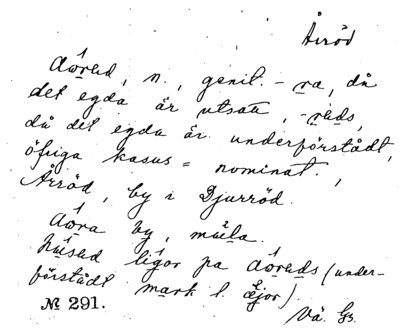 Årröd
åorəd, n., genit. -ra, då
det egda är utsatt, -rəds,
då det egda är underförstådt,
öfriga kasus = nominat.,
Årröd, by i Djurröd.
åora by, måla.
húsəd lígər pa åorəds (under-
förstådt mark l. ägor).
№ 291.
Vä. Gs.